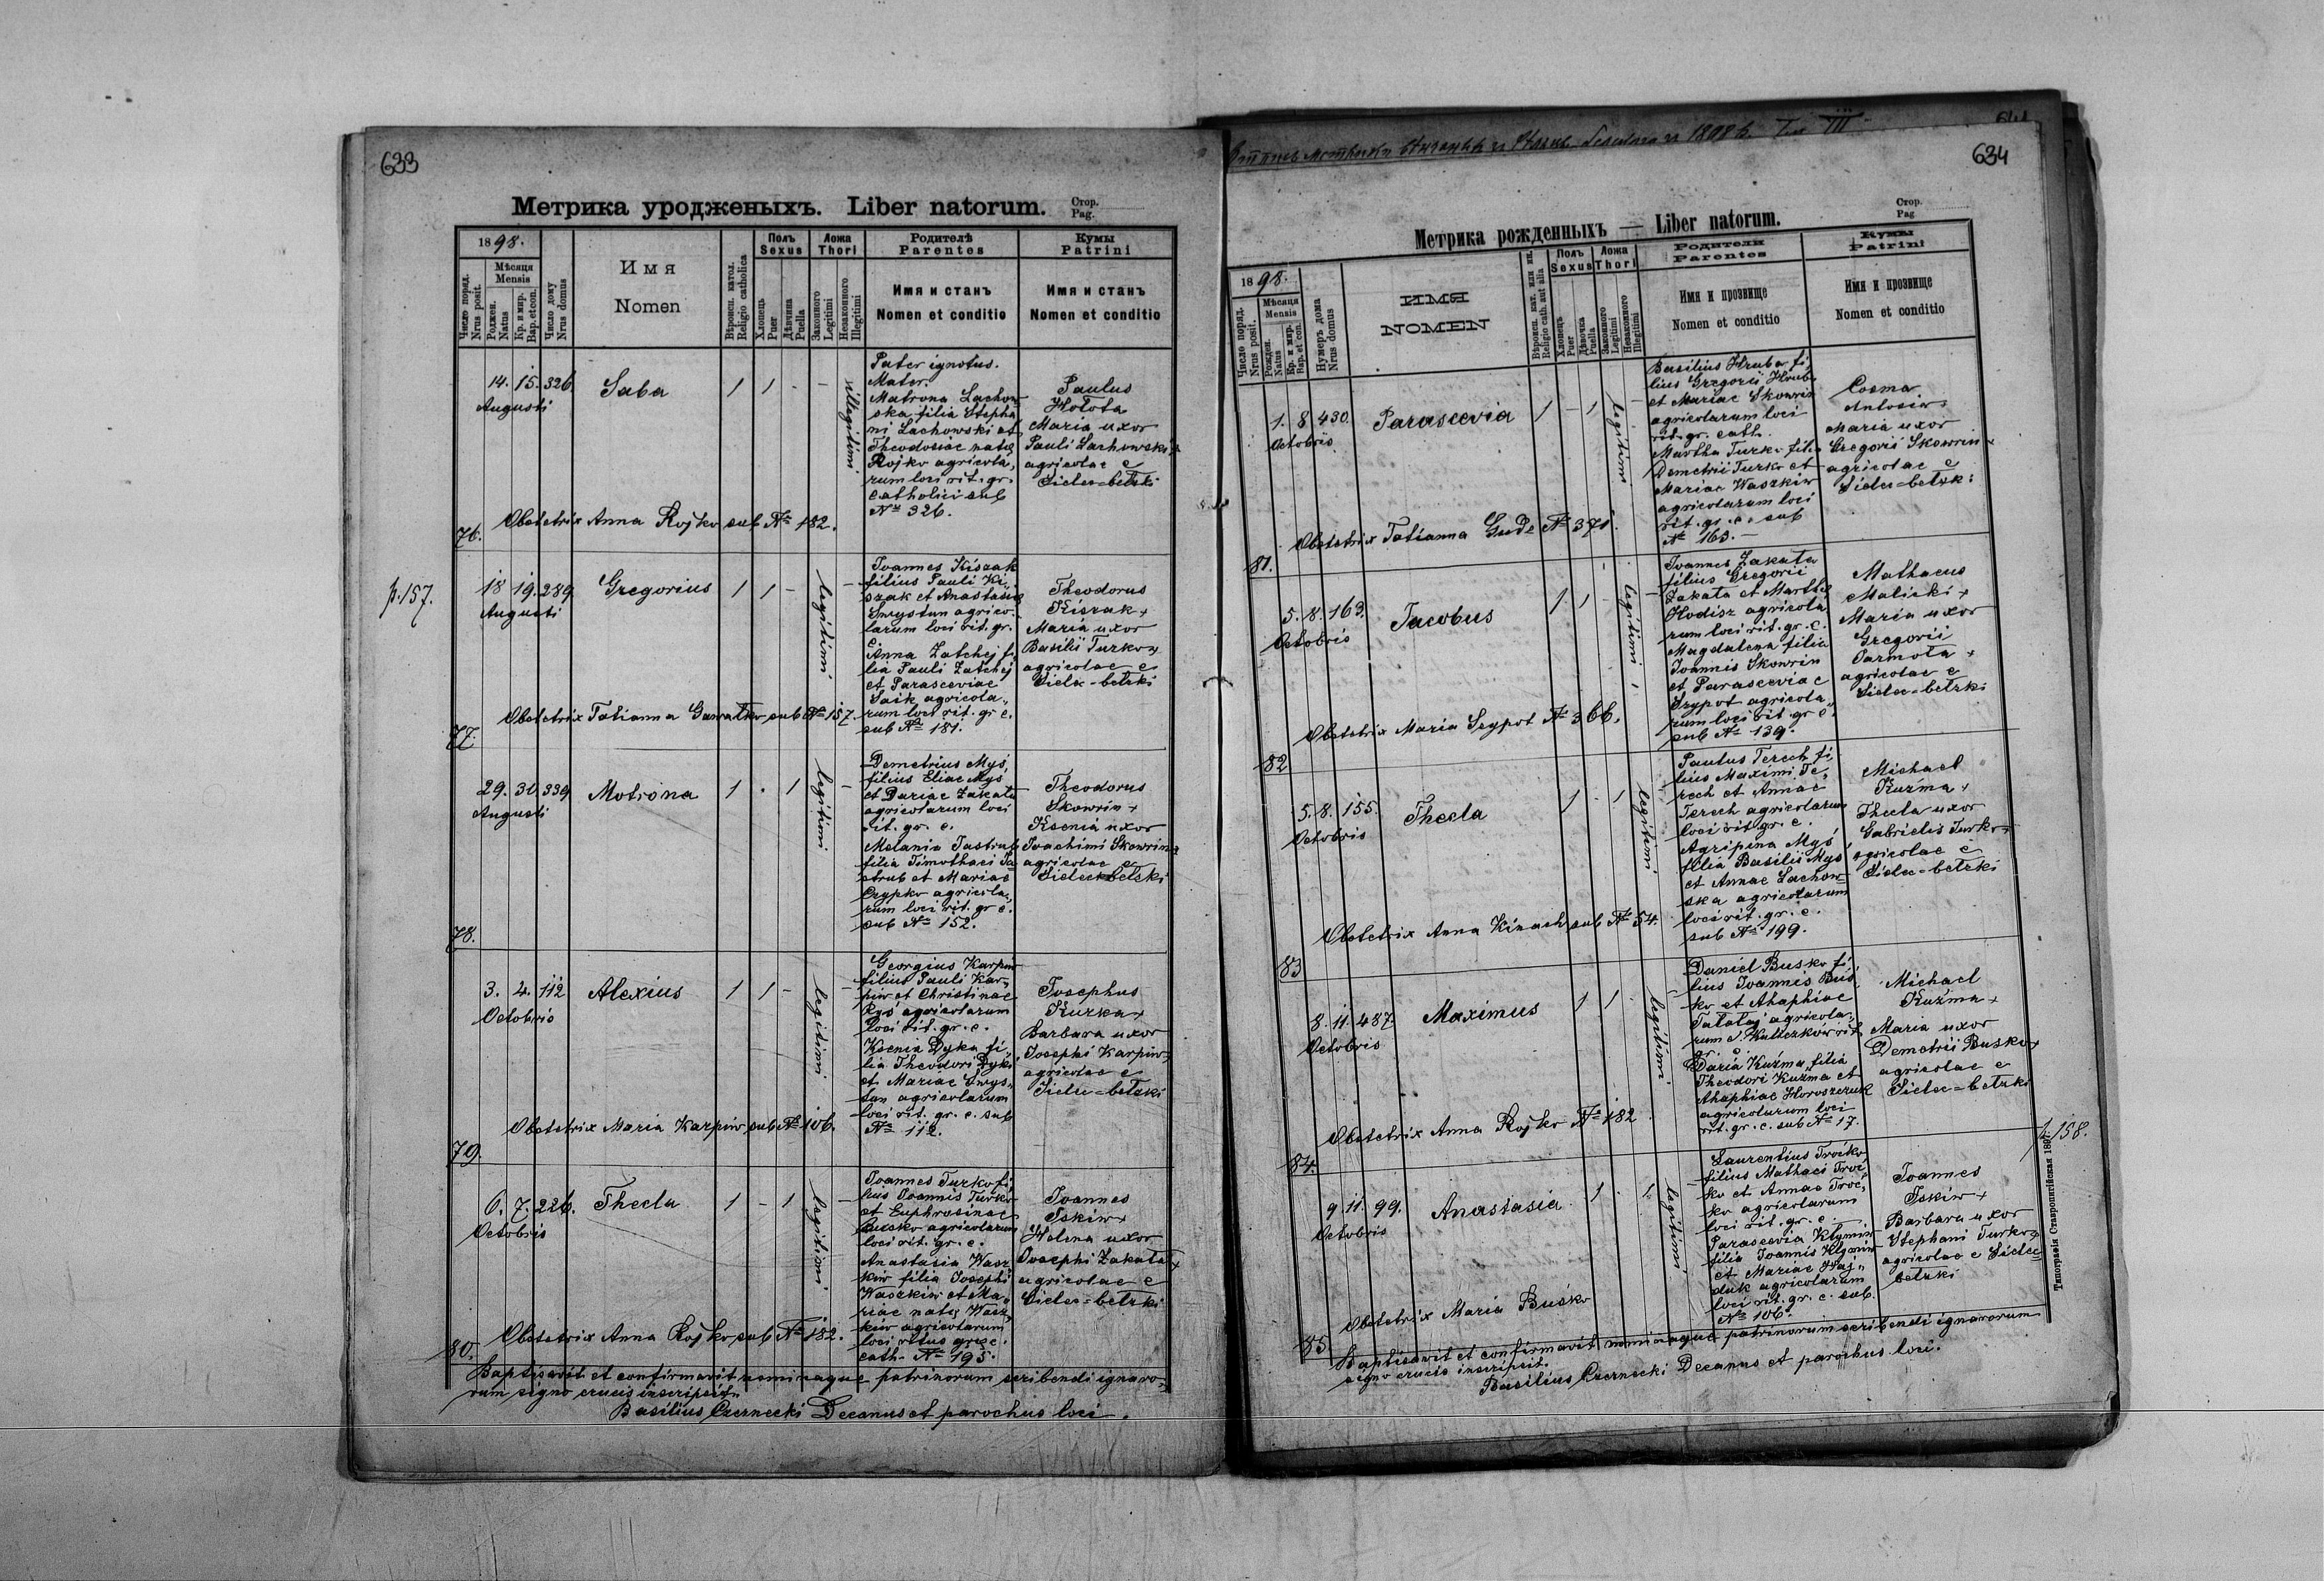 633
Метрика уродженыхъ. Liber natorum.
Стор.
Pag.
1898.
Число поряд.
Nrus posit.
Мѣсяця
Mensis
Роджен.
Natus
Кр. и мир.
Bap. et con.
Число дому
Nrus domus
Имя
Nomen
Вѣроисп. катол.
Religio catholica
Полъ
Sexus
Хлопець
Puer
Дѣвчина
Puella
Ложа
Thori
Законного
Legitimi
Незаконного
Illegitimi
Родителѣ
Parentes
Имя и станъ
Nomen et conditio
Кумы
Patrini
Имя и станъ
Nomen et conditio
14. 15. 326
Augusti
Saba
1 1 - -
illegitimi
Pater ignotus.
Mater.
Matrona Lachow=
ska filia Stepha
ni Lachowski et
Theodosiae natae
Rojko agricola,
rum loci rit. gr.
catholici sub
No 326.
Paulus
Hołota
Maria uxor
Pauli Lachowski +
agricolae e
Sielec=bełzki
Obstetrix Anna Rojko sub No 182.
76.
p.157.
18 19. 289
Augusti
Gregorius
1 1 -
legitimi
-
Joannes Kiszak
filius Pauli Ki,,
szak et Anastasiae
Smystun agrico-
larum loci rit. gr.
c.
Anna Zatchej fi
lia Pauli Zatchej
et Parasceviae
Saik agricola,,
rum loci rit. gr c.
sub No 181.
Theodorus
Kiszak +
Maria uxor
Basilii Turko +
agricolae e
Sielec=bełzki
Obstetrix Tatianna Gawałko sub No 157.
77.
29. 30. 339
Augusti
Motrona
1 . 1
legitimi
-
Demetrius Myś,
filius Eliae Myś
et Dariae Zakała
agricolarum loci
rit. gr. c.
Melania Jastrub
filia Timothaei Ja
strub et Mariae
Czypko agricola,,
rum loci rit. gr c.
sub No 152.
Theodorus
Skowrin +
Ksenia uxor
Joachimi Skowrin +
agricolae e
Sielec bełzki
78.
3. 4. 112
Octobris
Alexius
1 1 -
legitimi
-
Georgius Karpin
filius Pauli Kar,,
piw et Christinae
Ryś agricolarum
loci rit. gr. c.
Ksenia Dyka fi,
lia Theodori Dyki
et Mariae Smys,,
tun agricolarum
loci rit. gr. c. sub
No 112.
Josephus
Kurka +
Barbara uxor
Josephi Karpiw +
agricolae e
Sielec=bełzki
Obstetrix Maria Karpiw sub No 106.
79.
6. 7. 226.
Octobris
Thecla
1 - 1
legitimi
-
Joannes Turko fi,
lius Joannis Turko
et Euphrosinae
Busko agricolarum
loci rit. gr. c.
Anastasia Wasz
kiw filia Josephi
Waszkiw et Ma,
riae natae Wasz,
kiw agricolarum
loci ritus graec.
cath. No 195.
Joannes
Iskiw +
Helena uxor
Josephi Zakała +
agricolae e
Sielec=bełzki
Obstetrix Anna Rojko sub No 182.
80.
Baptisavit et confirmavit nominaque patrinorum scribendi ignaro,
rum signo crucis inscripsit
Basilius Czernecki Decanus et parochus loci.
634
Метрика рожденныхъ — Liber natorum.
Стор.
Pag
1898.
Число поряд.
Nrus posit.
Мѣсяца
Mensis
Рожден.
Natus
Кр. и мир.
Bap. et con.
Нумеръ дома
Nrus domus
ИМЯ
NOMEN
Вѣроисп. кат. или ин.
Religio cath. aut alia
Полъ
Sexus
Хлопець
Puer
Дѣвочка
Puella
Ложа
Thori
Законного
Legitimi
Незаконного
Illegitimi
Родители
Parentes
Имя и прозвище
Nomen et conditio
Кумы
Patrini
Имя и прозвище
Nomen et conditio
1. 8 430.
Octobris
Parascevia
1 - 1
legitimi
-
Basilius Hruba fi,
lius Gregorii Hruba
et Mariae Skowrin
agricolarum loci
rit. gr. cath.
Martha Turko filia
Demetrii Turko et
Mariae Waszkiw
agricolarum loci
rit. gr. c. sub
No 163. —
Cosma
Antosiw +
Maria uxor
Gregorii Skowrin +
agricolae e
Sielec=bełzki
Obstetrix Tatianna Guda No 371.
81.
5. 8. 163.
Octobris
Jacobus
1 1 -
legitimi
-
Joannes Zakała
filius Gregorii
Zakała et Marthae
Hodisz agricola
rum loci rit. gr. c.
Magdalena filia
Joannis Skowrin
et Parasceviae
Szypot agricola,,
rum loci rit. gr c.
sub No 139.
Mathaeus
Malicki +
Maria uxor
Gregorii
Jarmoła +
agricolae e
Sielec=bełzki
Obstetrix Maria Szypot No 366.
82
5. 8. 155.
Octobris
Thecla
1 . 1
legitimi
Paulus Terech fi,
lius Maximi Te,
rech et Annae
Terech agricolarum
loci rit gr. c.
Agripina Myś
filia Basilii Myś
et Annae Lachow=
ska agricolarum
loci rit. gr. c.
sub No 199.
Michael
Kuźma +
Thecla uxor
Gabrielis Turko +
agricolae e
Sielec=bełzki
Obstetrix Anna Kinach sub No 54.
83
8. 11. 487
Octobris
Maximus
1 1 .
legitimi
Daniel Busko fi,
lius Joannis Bus,
ko et Ahaphiae
Tałałaj agricola,,
rum S. Kuliczków rit
gr. c.
Daria Kuźma filia
Theodori Kuźma et
Ahaphiae Horoszczuk
agricolarum loci
rit. gr. c. sub No 17.
Michael
Kuźma +
Maria uxor
Demetrii Busko +
agricolae e
Sielec=bełzki
Obstetrix Anna Rojko No 182
84.
p.158.
9. 11. 99.
Octobris
Anastasia
1 . 1.
legitimi
-
Laurentius Troćko
filius Mathaei Troć,
ko et Annae Troć,,
ko agricolarum
loci rit. gr. c.
Parascevia Klymiw
filia Joannis Klymiw
et Mariae Haj,,
duk agricolarum
loci rit. gr. c. sub.
No 106.
Joannes
Iskiw +
Barbara uxor
Stephani Turko +
agricolae e Sielec=
bełzki
Obstetrix Maria Busko
85
Baptisavit et confirmavit nominaque patrinorum scribendi ignarorum
signo crucis inscripsit.
Basilius Czernecki Decanus et parochus loci.
Типографія Ставропигійская 1897